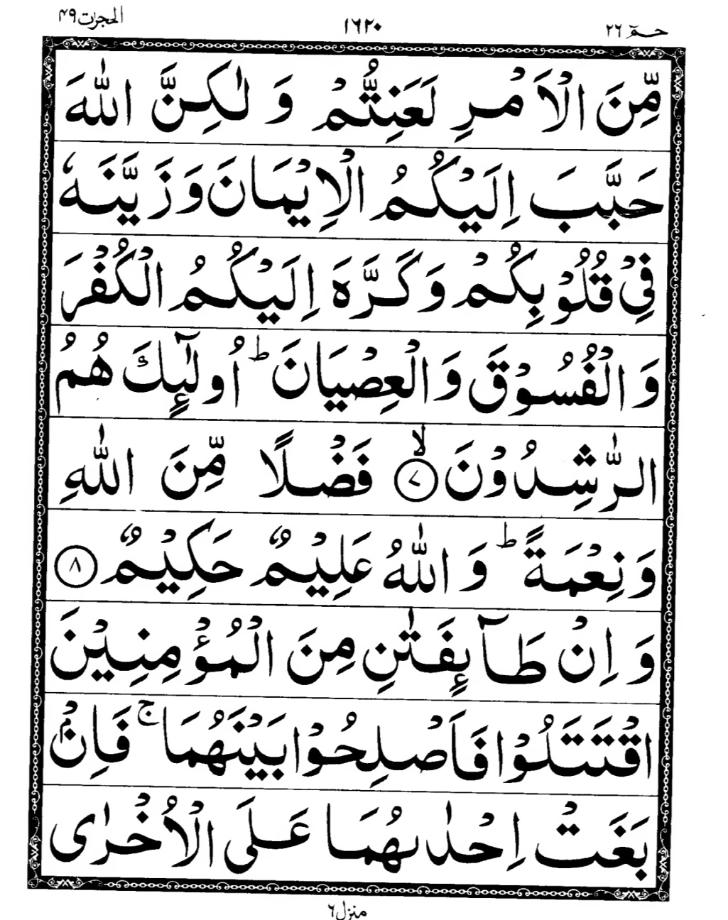 الحجرٰت ۴۹ ۱۶۲۰ حٰمٓ ۲۶
مِّنَ الْاَمْرِ لَعَنِتُّمْ وَ لٰكِنَّ اللّٰهَ
حَبَّبَ اِلَیْكُمُ الْاِیْمَانَ وَ زَیَّنَهٗ
فِیْ قُلُوْبِكُمْ وَ كَرَّهَ اِلَیْكُمُ الْكُفْرَ
وَ الْفُسُوْقَ وَ الْعِصْیَانَ ؕ اُولٰٓىِٕكَ هُمُ
الرّٰشِدُوْنَ ۙ﴿۷﴾ فَضْلًا مِّنَ اللّٰهِ
وَ نِعْمَةً ؕ وَ اللّٰهُ عَلِیْمٌ حَكِیْمٌ ﴿۸﴾
وَ اِنْ طَآىِٕفَتٰنِ مِنَ الْمُؤْمِنِیْنَ
اقْتَتَلُوْا فَاَصْلِحُوْا بَیْنَهُمَا ۚ فَاِنْۢ
بَغَتْ اِحْدٰىهُمَا عَلَی الْاُخْرٰی
منزل ۶